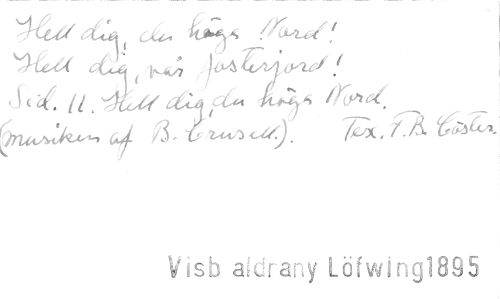 Hell dig, du höga Nord!
Hell dig, vår fosterjord!
Sid. 11. Hell dig, du höga Nord.
(musiken af B. Crusell). Tex. F.B. Cöster.
Visb aldrany Löfwing1895